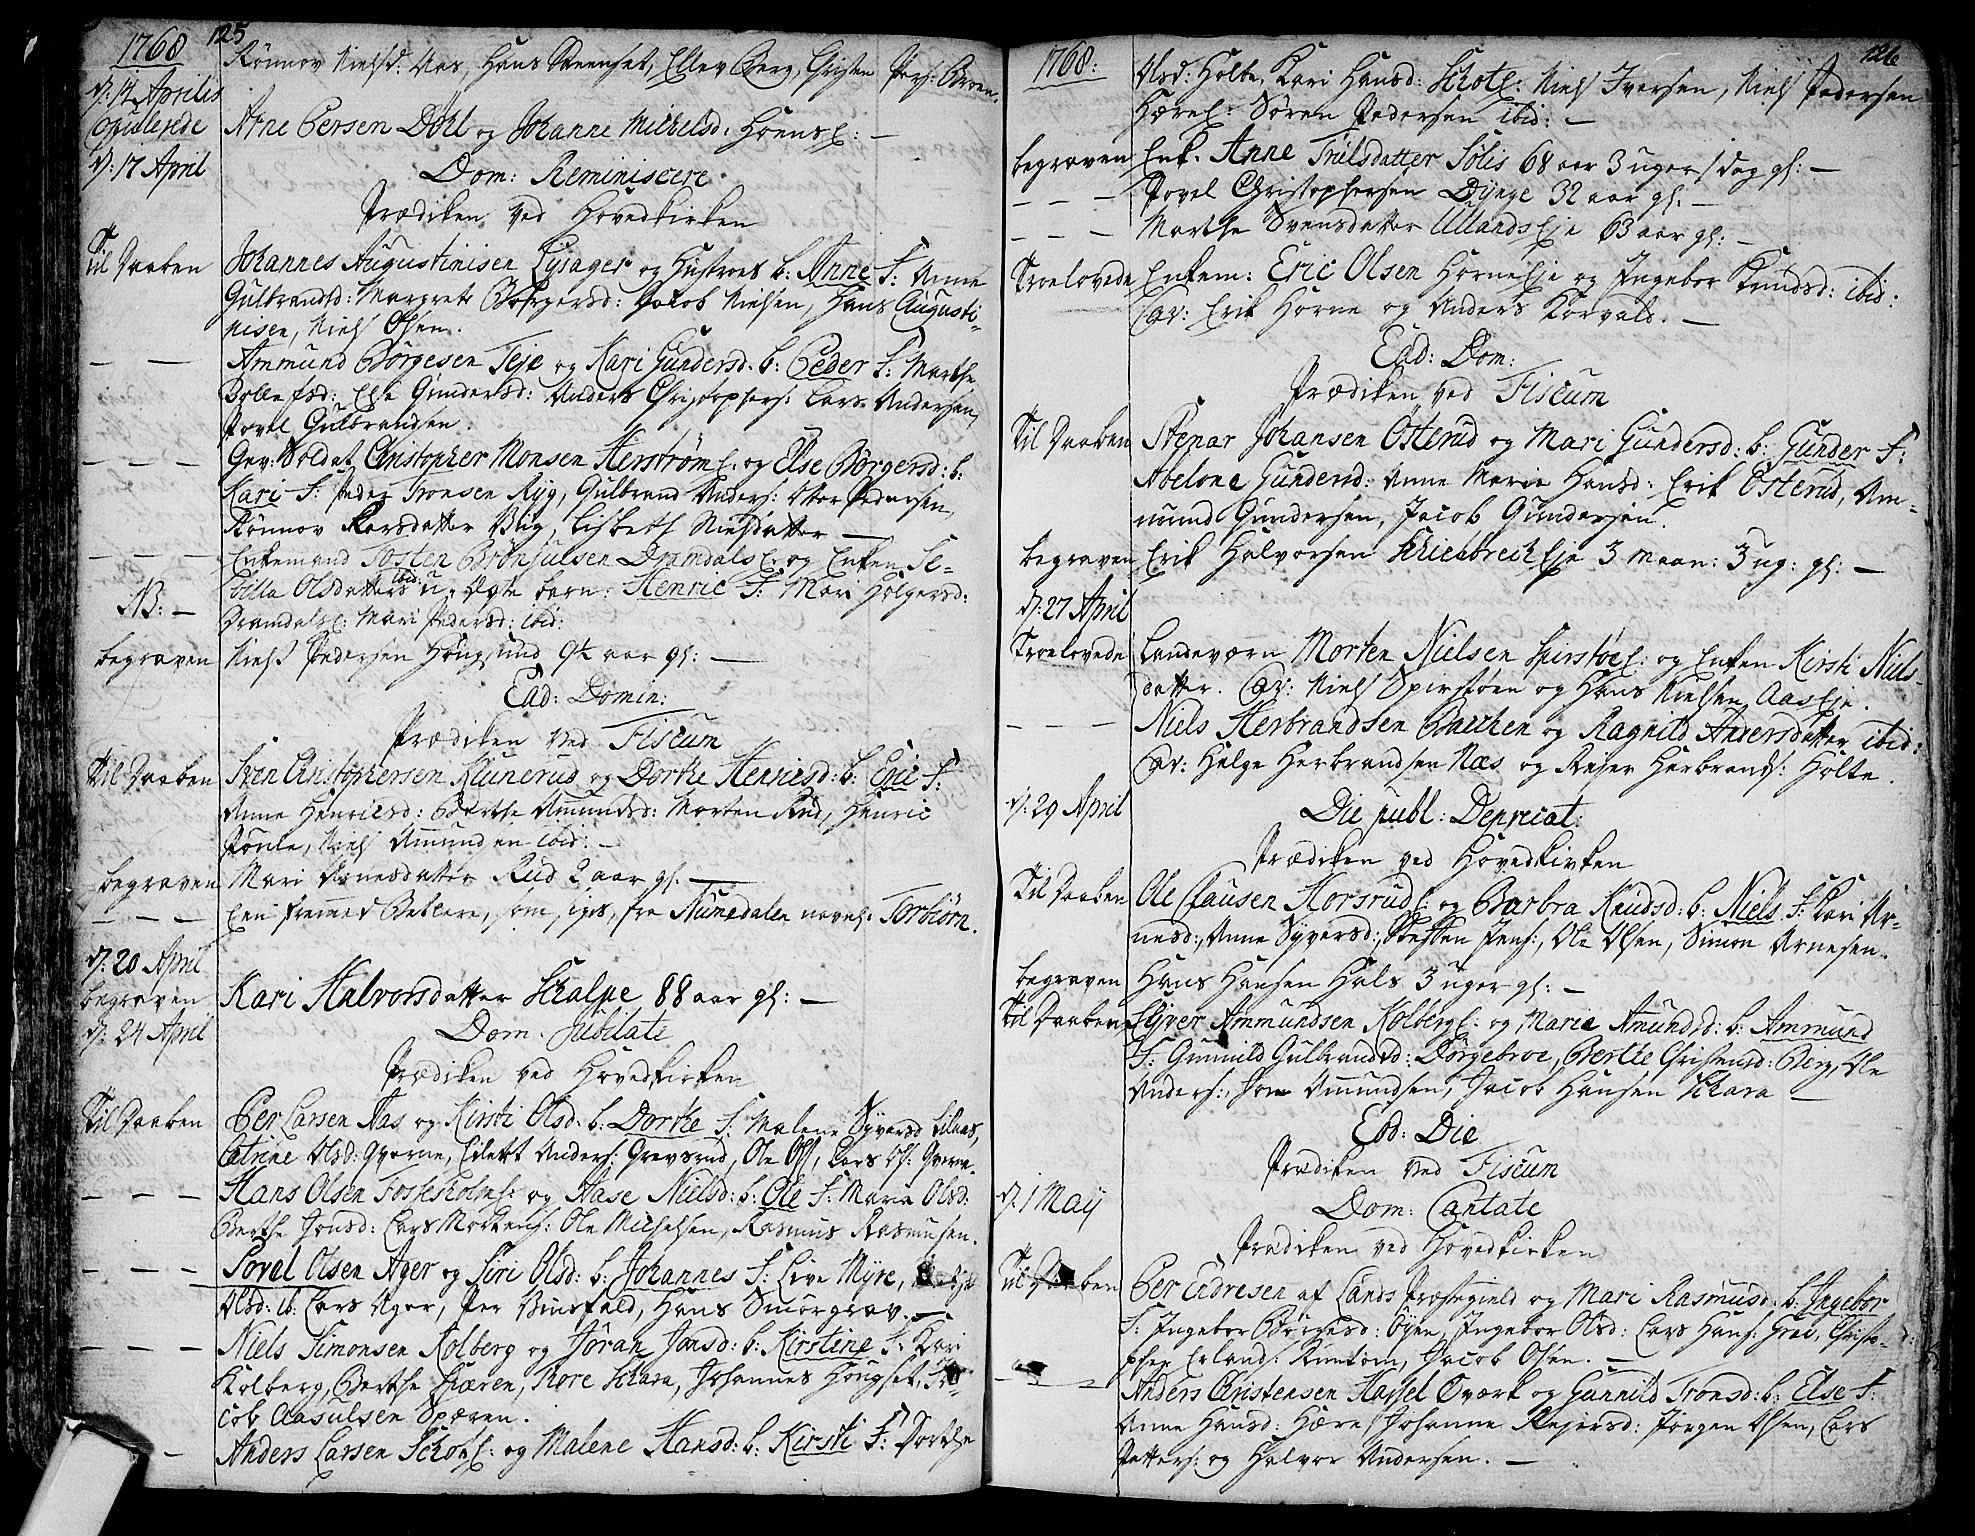 1768 125
Rönnov Nielsd: Aas, Hans Steenset, Ellev Berg, Christen Pers: Broen.
d: 14 Aprilis
Copulerede Arne Persen Dohl og Johanne Michelsd: HoensE: —
d: 17 April Dom: Reminiscere.
Prædiken ved Hovedkirken
Til Daaben Johannes Augustinisen Lysager og Hustroes b: Anne F: Anne
Gulbrandsd: Margrete Borgersd: Jacob Nielsen, Hans Augusti-
nisen, Niels Olsen.
— — Ammund Børgesen Teje og Kari Gundersd. b: Peder F: Marthe
Else Gundersd: Anders Christophers: Lars Andersen,
Povel Gulbrandsen.
— — — Gev: Soldat Christopher Monsen HerstrømE. og Else Børgersd: b:
Kari F: Peder Tronsen Ryg, Gulbrand Anders: Peder Pedersen,
Rönnov Larsdatter Blig, Lisbeth Nielsdatter —
— — — Enkemand Tosten Brönjulsen DramdalsE. og Enken Se-
NB: — billa Olsdatters ibid: u. Ægte barn: Henric F: Mari Holgersd:
DramdalsE: Mari Pedersd: ibid:
begraven Niels Pedersen Hougsund 9½ aar gl: —
Ead: Domin:
Prædiken ved Fiscum
Til Daaben Sven Christophersen Klunerud og Dorthe Henricsd: b: Eric F:
Anne Henricsd: Berthe Amundsd: Morten Rud, Henric
Niels Amundsen ibid: —
begraven Mari Arnesdatter Rud 2 aar gl. —
— — — Een fremmed Betlere, som siges, fra Numedalen navnl: Torbiörn.
d: 20 April
begraven Kari Halvorsdatter Schalpe 88 aar gl: —
d: 24 April Dom. Jubilate
Prædiken ved Hovedkirken
Til Daaben Per Larsen Aas og Kirsti Olsd: b: Dorthe F: Malene Syversd
Catrine Olsd: Qverne, Anders Grevsrud, Ole Ols:, Lars Ols: Qverne.
— — — Hans Olsen og Aase Nielsd: b: Ole F: Maria Olsd:
Berthe Jonsd: Lars Mortens: Ole Michelsen, Rasmus Rasmusen.
— — — Povel Olsen Ager og Siri Olsd: b: Johannes F: Live Myre,
Olsd: ib: Lars Ager, Per Binsfald, Hans Smörgrav. —
— — — Niels Simonsen Kolberg og Jöran Jonsd: b: Kirstine F: Kari
Kolberg, Berthe Spæren, Tore Schara, Johannes Hougset, Ja-
cob Aasulsen Spæren.
— Anders Larsen SchotsE: og Malene Hansd: b: Kirsti F: Dorthe
1768: 126
Olsd: Holte, Kari Hansd: SchotE: Niels Iversen, Niels Pedersen
HæreE: Sören Pedersen ibid: —
begraven Enk. Anne Troelsdatter Sölis 68 aar 3 uger 1 dag gl: —
— — — Povel Christophersen Dynge 32 aar gl. —
— — — Marthe Svensdatter UllandsEje 63 aar gl: —
Troelovede Enkem: Eric Olsen HorneEje og Ingebor Knudsd: ibid:
Cav: Erik Horne og Anders Korvald. —
Ead: Dom:
Prædiken ved Fiscum
Til Daaben Stenar Johansen Österud og Mari Gundersd: b: Gunder F:
Abelone Gundersd: Anne Marie Hansd: Erik Österud, Am-
mund Gundersen, Jacob Gundersen.
begraven Erik Halvorsen SkriebreckEje 3 maan: 3 ug: gl: —
d: 27 April
Troelovede Landeværn Morten Nielsen SpirstöeE: og Enken Kirsti Niels-
datter. Cav: Niels Spirstöen og Hans Nielsen AasEje.
— — — Niels Herbrandsen Bachen og Ragnild Andersdatter ibid:
Cav: Helge Herbrandsen Næs og Reier Herbrands: Holte.
d: 29 April Die publ: Deprecat:
Prædiken ved Hovedkirken
Til Daaben Ole Clausen HorsrudE: og Barbra Knudsd: b: Niels F: Kari Ar-
nesd:, Anne Syversd:, Steffen Jens:, Ole Olsen, Simon Arnesen.
begraven Hans Hansen Hals 3 uger gl: —
Til Daaben Syver Ammundsen KolbergE: og Marie Amundsd: b: Ammund
F: Gunnild Gulbrandsd: Dörgebroe, Berthe Christensd: Berg, Ole
Anders:, Jon Amundsen, Jacob Hansen Schara —
Eod: Die
Prædiken ved Fiscum
d: 1 Maij Dom: Cantate
Prædiken ved Hovedkirken
Til Daaben Per Edresen af Lands Præstegield og Mari Rasmusd: b: Ingebor
F: Ingebor Börgesd: Öyen, Ingebor Olsd: Lars Hans: Christo-
pher Erlands: Jacob Olsen. —
— — Anders Christensen Hassel Overk og Gunnild Tronsd: b: Else F:
Anne Hansd: Hære, Johanne Reiersd: Jörgen Olsen, Lars
Petters: og Halvor Andersen. —